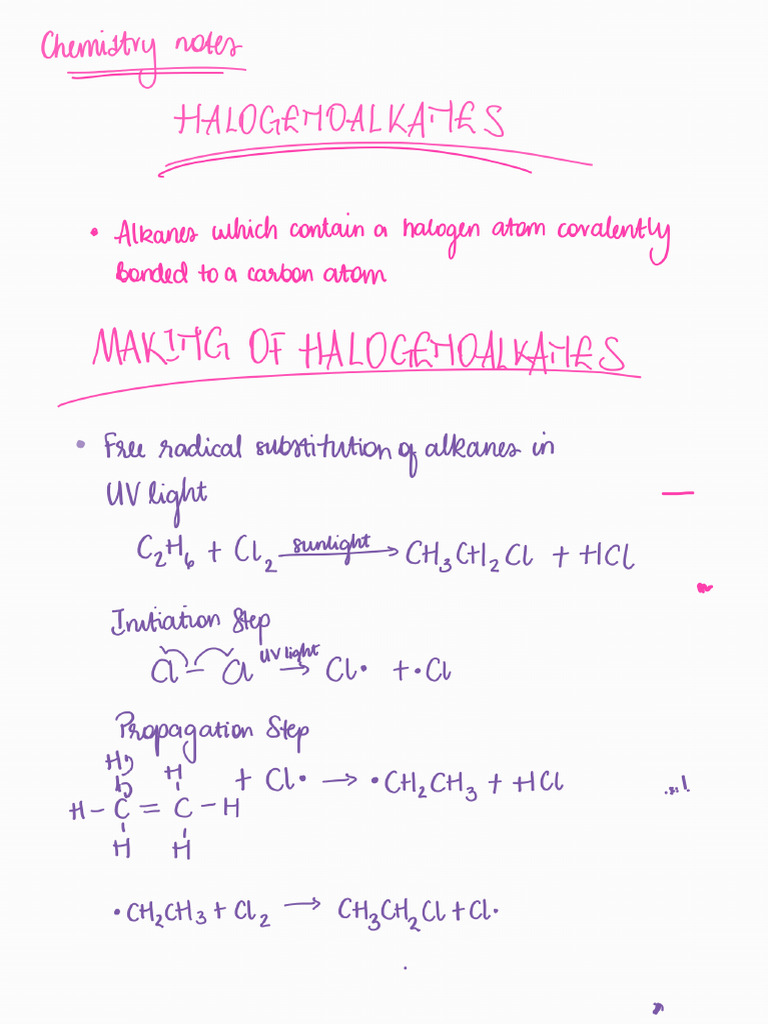 Chemistry notes
HALOGENOALKANES
• Alkanes which contain a halogen atom covalently
bonded to a carbon atom
MAKING OF HALOGENOALKANES
• Free radical substitution of alkanes in
UV light
C₂H₆ + Cl₂ sunlight → CH₃CH₂Cl + HCl
Initiation Step
Cl – Cl UV light → Cl• + •Cl
Propagation Step
H H
H – C = C – H + Cl• → •CH₂CH₃ + HCl
H H
•CH₂CH₃ + Cl₂ → CH₃CH₂Cl + Cl•